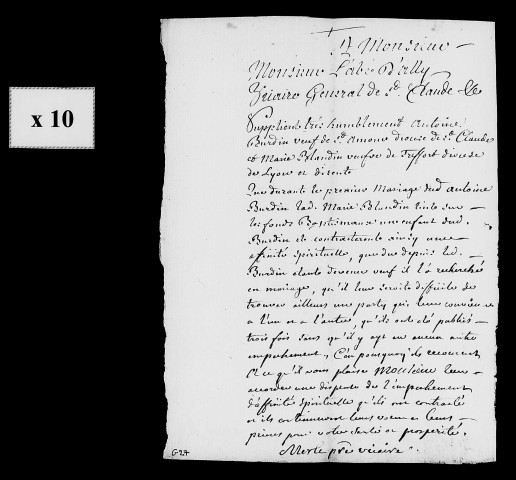 x 10
A Monsieur
Monsieur L'abé D'ally
Vicaire General de St. Claude &c
Supplient trés humblement antoine
Burdin veuf de St. Amour diocese de St. Claude
et Marie Blandin veufve de Treffort diocese
de Lyon et disent
Que durant le premier Mariage dud. antoine
Burdin lad. Marie Blandin tint sur
les fonds Baptismaux un enfant dud.
Burdin et contracterent ainsy une
affinité spirituelle, que du depuis led.
Burdin etant devenu veuf il l'a recherché
en mariage, qu'il leur seroit difficile de
trouver ailleurs un party qui leur convienne
a l'un et a l'autre, qu'ils ont eté publiés
trois fois sans qu'il y ayt eu aucun autre
empechement, C'est pourquoy ils recourent
A ce qu'il vous plaise Monsieur leur
accorder une dispense de l'empechement
d'affinité spirituelle qu'ils ont contracté
et ils continueront leurs voeux et leurs
prieres pour votre santé et prosperité.
Merle prêtre vicaire
G-27